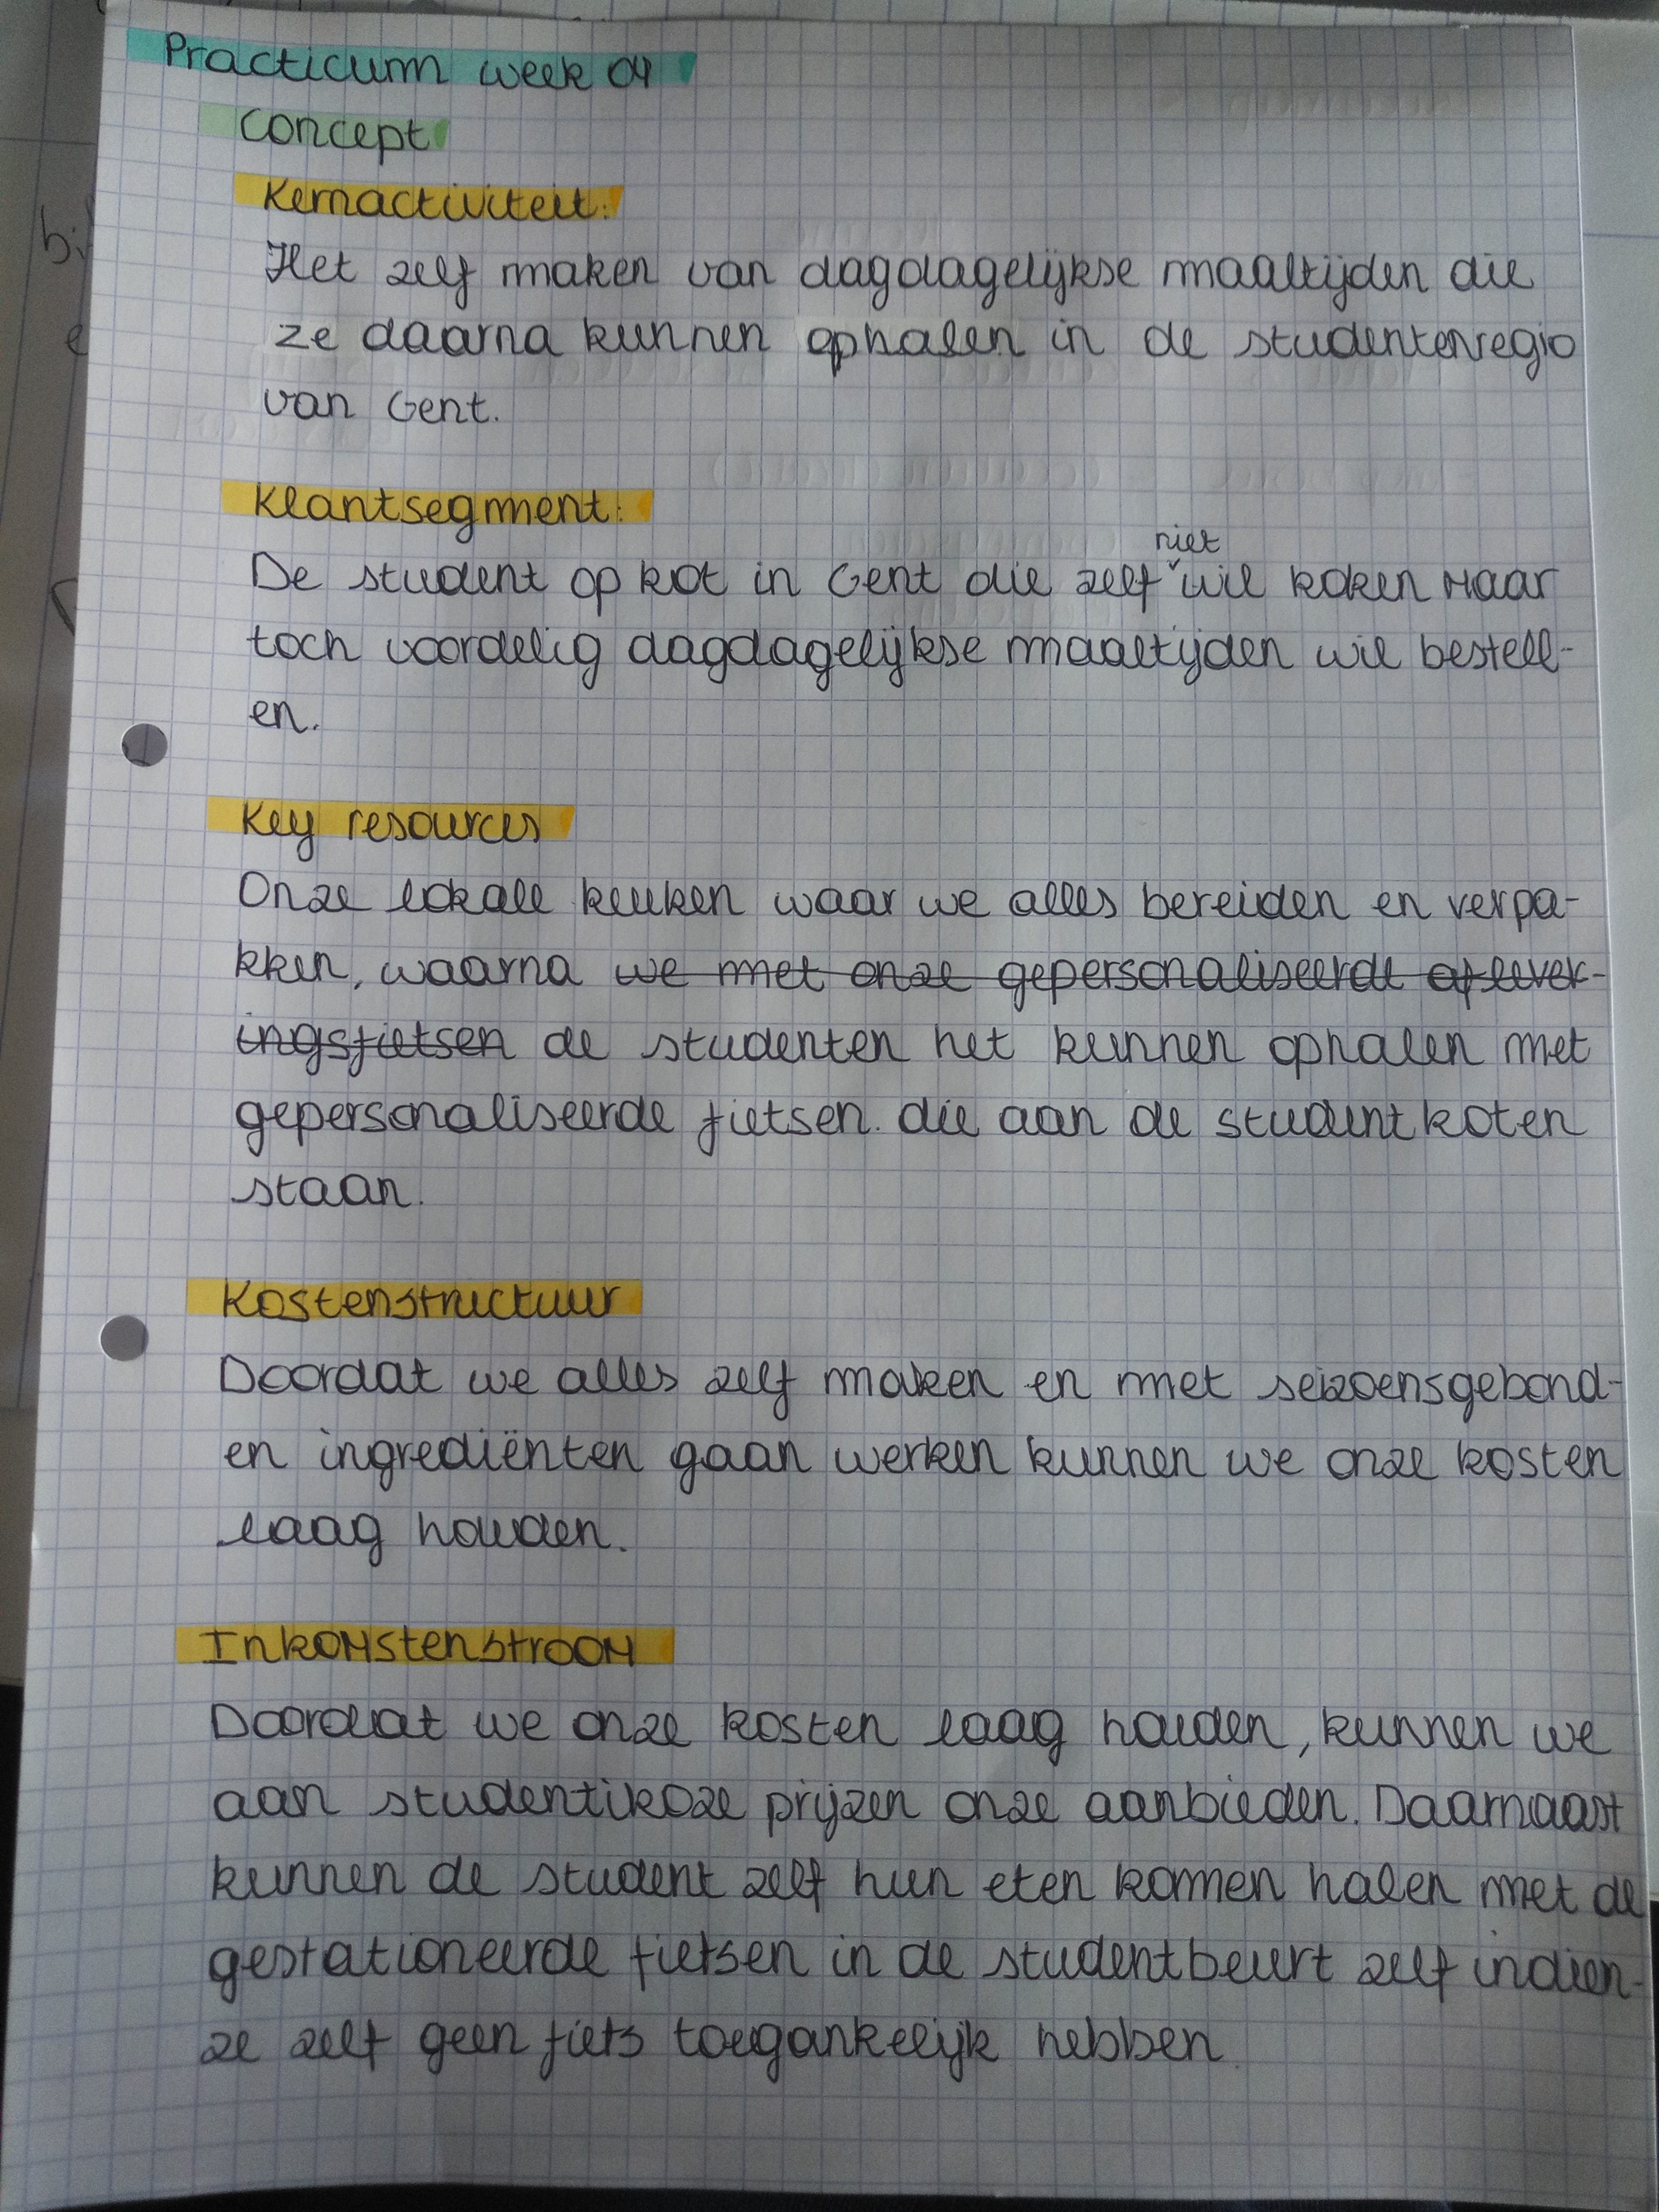 Practicum week 04
Concept
Kernactiviteit:
Het zelf maken van dagdagelijkse maaltijden die
ze daarna kunnen ophalen in de studentenregio
van Gent.
Klantsegment:
niet
De student op kot in Gent die zelf wil koken maar
toch voordelig dagdagelijkse maaltijden wil bestell-
en.
Key resources
Onze lokale keuken waar we alles bereiden en verpa-
kken, waarna we met onze gepersonaliseerde aflever-
ingsfietsen de studenten het kunnen ophalen met
gepersonaliseerde fietsen. die aan de studentkoten
staan.
Kostenstructuur
Doordat we alles zelf maken en met seizoensgebond-
en ingrediënten gaan werken kunnen we onze kosten
laag houden.
Inkomstenstroom
Doordat we onze kosten laag houden, kunnen we
aan studentikoze prijzen onze aanbieden. Daarnaast
kunnen de student zelf hun eten komen halen met de
gestationeerde fietsen in de studentbeurt zelf indien
ze zelf geen fiets toegankelijk hebben.